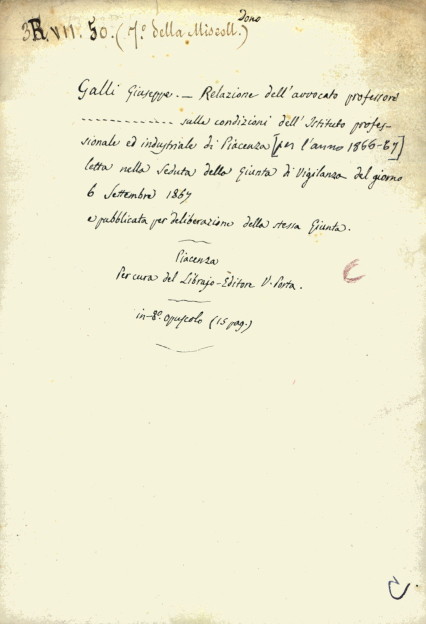 Dono
3R.VII.50. (7º della Miscell.)
Galli Giuseppe. — Relazione dell'avvocato professore
------------- sulle condizioni dell'Istituto profes-
sionale ed industriale di Piacenza [per l'anno 1866-67]
letta nella Seduta della Giunta di Vigilanza del giorno
6 Settembre 1867
e pubblicata per deliberazione della stessa Giunta.
Piacenza
Per cura del Librajo-Editore V. Porta.
in-8º. opuscolo (15 pag.)